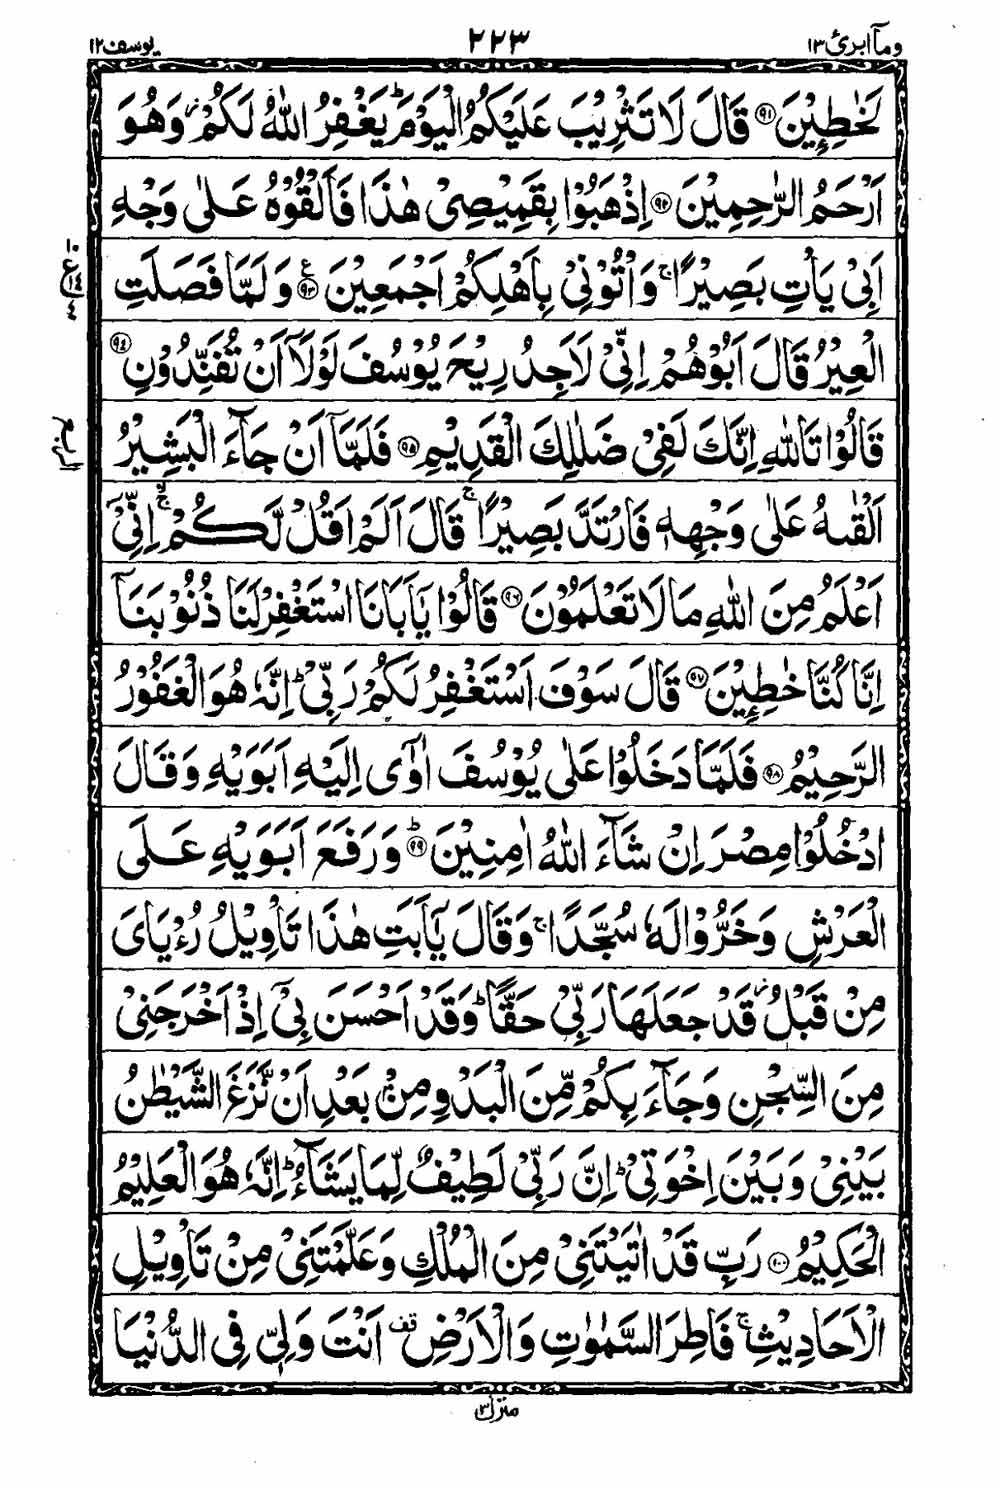 وما ابرئ ١٣ ٢٢٣ يوسف ١٢
لَخٰطِـِٕيْنَ ﴿٩١﴾ قَالَ لَا تَثْرِيْبَ عَلَيْكُمُ الْيَوْمَ ؕ يَغْفِرُ اللّٰهُ لَكُمْ ؗ وَهُوَ
اَرْحَمُ الرّٰحِمِيْنَ ﴿٩٢﴾ اِذْهَبُوْا بِقَمِيْصِيْ هٰذَا فَاَلْقُوْهُ عَلٰى وَجْهِ
اَبِيْ يَاْتِ بَصِيْرًا ۚ وَاْتُوْنِيْ بِاَهْلِكُمْ اَجْمَعِيْنَ ﴿٩٣﴾ ع وَلَمَّا فَصَلَتِ
الْعِيْرُ قَالَ اَبُوْهُمْ اِنِّيْ لَاَجِدُ رِيْحَ يُوْسُفَ لَوْلَاۤ اَنْ تُفَنِّدُوْنِ ﴿٩٤﴾
قَالُوْا تَاللّٰهِ اِنَّكَ لَفِيْ ضَلٰلِكَ الْقَدِيْمِ ﴿٩٥﴾ فَلَمَّاۤ اَنْ جَآءَ الْبَشِيْرُ
اَلْقٰىهُ عَلٰى وَجْهِهٖ فَارْتَدَّ بَصِيْرًا ۚ قَالَ اَلَمْ اَقُلْ لَّكُمْ ۚ اِنِّيْۤ
اَعْلَمُ مِنَ اللّٰهِ مَا لَا تَعْلَمُوْنَ ﴿٩٦﴾ قَالُوْا يٰۤاَبَانَا اسْتَغْفِرْ لَنَا ذُنُوْبَنَاۤ
اِنَّا كُنَّا خٰطِـِٕيْنَ ﴿٩٧﴾ قَالَ سَوْفَ اَسْتَغْفِرُ لَكُمْ رَبِّيْ ؕ اِنَّهٗ هُوَ الْغَفُوْرُ
الرَّحِيْمُ ﴿٩٨﴾ فَلَمَّا دَخَلُوْا عَلٰى يُوْسُفَ اٰوٰۤى اِلَيْهِ اَبَوَيْهِ وَقَالَ
ادْخُلُوْا مِصْرَ اِنْ شَآءَ اللّٰهُ اٰمِنِيْنَ ﴿٩٩﴾ؕ وَرَفَعَ اَبَوَيْهِ عَلَى
الْعَرْشِ وَخَرُّوْا لَهٗ سُجَّدًا ۚ وَقَالَ يٰۤاَبَتِ هٰذَا تَاْوِيْلُ رُءْيَايَ
مِنْ قَبْلُ ؗ قَدْ جَعَلَهَا رَبِّيْ حَقًّا ؕ وَقَدْ اَحْسَنَ بِيْۤ اِذْ اَخْرَجَنِيْ
مِنَ السِّجْنِ وَجَآءَ بِكُمْ مِّنَ الْبَدْوِ مِنْۢ بَعْدِ اَنْ نَّزَغَ الشَّيْطٰنُ
بَيْنِيْ وَبَيْنَ اِخْوَتِيْ ؕ اِنَّ رَبِّيْ لَطِيْفٌ لِّمَا يَشَآءُ ؕ اِنَّهٗ هُوَ الْعَلِيْمُ
الْحَكِيْمُ ﴿١٠٠﴾ رَبِّ قَدْ اٰتَيْتَنِيْ مِنَ الْمُلْكِ وَعَلَّمْتَنِيْ مِنْ تَاْوِيْلِ
الْاَحَادِيْثِ ۚ فَاطِرَ السَّمٰوٰتِ وَالْاَرْضِ قف اَنْتَ وَلِيّٖ فِي الدُّنْيَا
الربع
منزل ٣